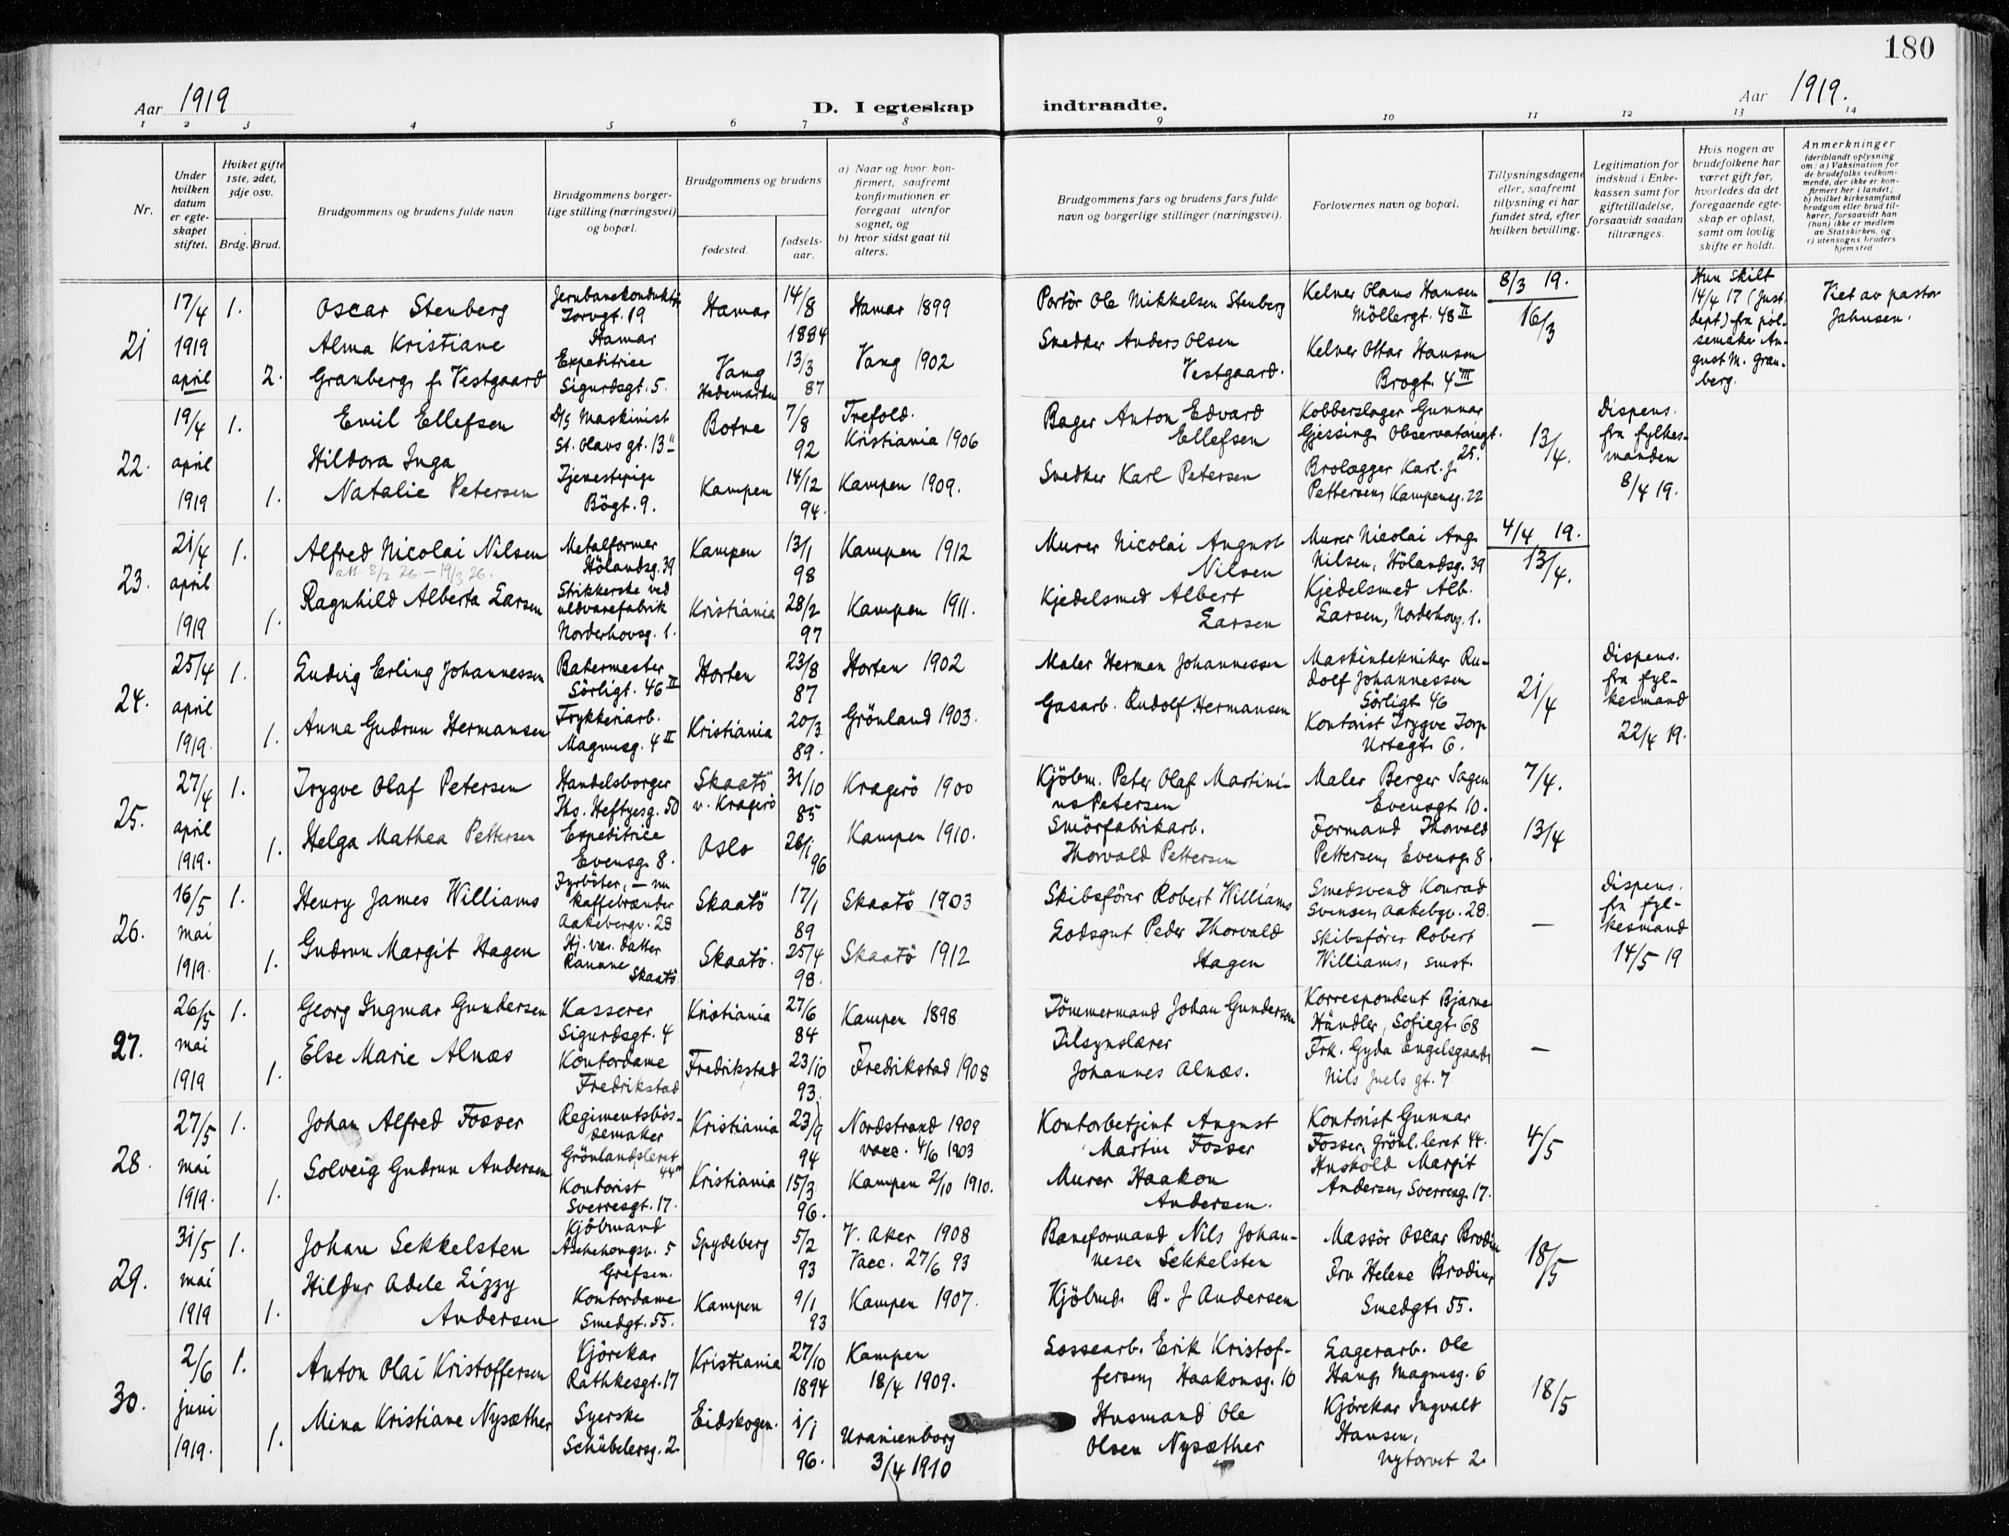 180
Aar 1919
D. I egteskap indtraadte.
Aar 1919.
1 2 3 4 5 6 7 8 9 10 11 12 13 14
Nr.
Under hvilken datum er egteskapet stiftet.
Hvilket gifte 1ste, 2det, 3dje osv.
Brdg. Brud.
Brudgommens og brudens fulde navn
Brudgommens borgerlige stilling (næringsvei) og bopæl.
Brudgommens og brudens
fødested.
fødselsaar.
a) Naar og hvor konfirmert, saafremt konfirmationen er foregaat utenfor sognet, og
b) hvor sidst gaat til alters.
Brudgommens fars og brudens fars fulde navn og borgerlige stillinger (næringsvei).
Forlovernes navn og bopæl.
Tillysningsdagene eller, saafremt tillysning ei har fundet sted, efter hvilken bevilling.
Legitimation for indskud i Enkekassen samt for giftetilladelse, forsaavidt saadan tiltrænges.
Hvis nogen av brudefolkene har været gift før, hvorledes da det foregaaende egteskap er opløst, samt om lovlig skifte er holdt.
Anmerkninger (deriblandt oplysning om: a) Vaksination for de brudefolks vedkommende, der ikke er konfirmert her i landet; b) hvilket kirkesamfund brudgom eller brud tilhører, forsaavidt han (hun) ikke er medlem av Statskirken, og c) utensogns bruders hjemsted
21 17/4 1919 april 1.
Oscar Stenberg
Jernbanekonduktør Torvgt. 19 Hamar
Hamar 14/8 1884
Hamar 1899
Portör Ole Mikkelsen Stenberg
Kelner Olaus Hansen Möllergt. 48 II
8/3 19. 16/3
Hun skilt 14/4 17 (Just. dept) fra pölsemaker August M. Granberg.
Viet av pastor Jahnsen.
2. Alma Kristiane Granberg f. Vestgaard
Expeditrice Sigurdsgt. 5.
Vang Hedemarken 13/3 87
Vang 1902
Snedker Anders Olsen Vestgaard.
Kelner Ottar Hansen Brogt. 4 III
22. 19/4 april 1919 1.
Emil Ellefsen
D/S Maskinist St. Olavs gt. 13 II
Botne 7/8 92
Trefold. Kristiania 1906
Bager Anton Edvard Ellefsen
Kobberslager Gunnar Gjessing, Observatoriegt. 25.
13/4.
Dispens. fra fylkesmanden 8/4 19.
1. Hildora Inga Natalie Petersen
Tjenestepige Bögt. 9.
Kampen 14/12 94.
Kampen 1909.
Snedker Karl Petersen
Brolægger Karl J. Pettersen, Kampeng. 22
23. 21/4 april 1919 1.
Alfred Nicolai Nilsen
att 8/2 26 - 19/3 26.
Metalformer Hölandsg. 39
Kampen 13/1 98
Kampen 1912
Murer Nicolai August Nilsen
Murer Nicolai Aug. Nilsen, Hölandsg. 39
4/4 19. 13/4.
1. Ragnhild Alberta Larsen
Strikkerske ved uldvarefabrik Norderhovsg. 1.
Kristiania 28/2 97
Kampen 1911.
Kjedelsmed Albert Larsen
Kjedelsmed Alb. Larsen, Norderhovg. 1.
24. 25/4 april 1919. 1.
Ludvig Erling Johannessen
Bakermester Sörligt. 46 II
Horten 23/8 87
Horten 1902
Maler Herman Johannessen
Maskintekniker Rudolf Johannessen Sörligt 46
21/4
Dispens. fra fylkesmand 22/4 19.
1. Anna Gudrun Hermansen
Trykkeriarb. Magnusg. 4 II
Kristiania 20/3 89.
Grönland 1903.
Gasarb. Rudolf Hermansen
Kontorist Trygve Torp Urtegt. 6.
25. 27/4 april 1919. 1.
Trygve Olaf Petersen
Handelsborger Ths. Heftyesg. 50
Skaatö v. Kragerö 31/10 85
Kragerö 1900
Kjöbm. Peter Olaf Martinius Petersen
Maler Berger Sagen Evensgt. 10.
7/4. 13/4
1. Helga Mathea Pettersen
Expeditrice Evensg. 8.
Oslo 26/1 96
Kampen 1910.
Smörfabrikarb. Thorvald Pettersen
Formand Thorvald Pettersen, Evensg. 8.
26. 16/5 mai 1919. 1.
Henry James Williams
Fyrböter, - nu kaffebrænder Aakebergv. 28
Skaatö 17/1 89
Skaatö 1903
Skibsförer Robert Williams
Smedsvend Konrad Svensen, Aakebgv. 28.
—
Dispens. fra fylkesmand 14/5 19
1. Gudrun Margit Hagen
Hj. vær. datter Skaatö
Skaatö. 25/4 98.
Skaatö 1912
Lodsgut Peder Thorvald Hagen
Skibsförer Robert Williams, smst.
27. 26/5 mai 1919 1.
Georg Ingmar Gundersen
Kasserer Sigurdsgt. 4
Kristiania 27/6 84
Kampen 1898
Tömmermand Johan Gundersen
Korrespondent Bjarne Händler, Sofiegt. 68
—
1. Else Marie Alnæs
Kontordame Fredrikstad
Fredrikstad 23/10 93.
Fredrikstad 1908
Tilsynslærer Johannes Alnæs.
Frk. Gyda Engelsgaard, Nils Juels gt. 7
28. 27/5 mai 1919. 1.
Johan Alfred Fosser
Regimentsbössemaker Grönlandsleret 44 II
Kristiania 23/9 94
Nordstrand 1909 vacc. 4/6 1903
Kontorbetjent August Martin Fosser
Kontorist Gunnar Fosser, Grönl. leret 44.
4/5
1. Solveig Gudrun Andersen
Kontorist Sverresgt. 17.
Kristiania 15/3 96.
Kampen 2/10 1910.
Murer Haakon Andersen.
Hushold. Margit Andersen, Sverresg. 17.
29. 31/5 mai 1919 1.
Johan Sekkelsten
Kjöbmand Aschehougsv. 5 Grefsen.
Spydeberg 5/2 93
V. Aker 1908 Vacc. 27/6 93
Baneformand Nils Johannesen Sekkelsten
Massör Oscar Brodin
18/5
1. Hildur Adele Lizzy Andersen
Kontordame Smedgt. 55.
Kampen 9/1 93
Kampen 1907.
Kjöbmd. B. J Andersen
Fru Helene Brodin, Smedgt. 55.
30. 2/6 juni 1919. 1.
Anton Olai Kristoffersen
Kjörekar Rathkesgt. 17
Kristiania 27/10 1894
Kampen 18/4 1909.
Lossearb. Erik Kristoffersen, Haakonsg. 10
Lagerarb. Ole Haug, Magnusg. 6
18/5
1. Mina Kristiane Nysæther
Syerske Schübelersg. 2
Eidskogen. 1/1 96.
Uranienborg 3/4 1910
Husmand Ole Olsen Nysæther
Kjörekar Ingvald Hansen, Nytorvet 2.